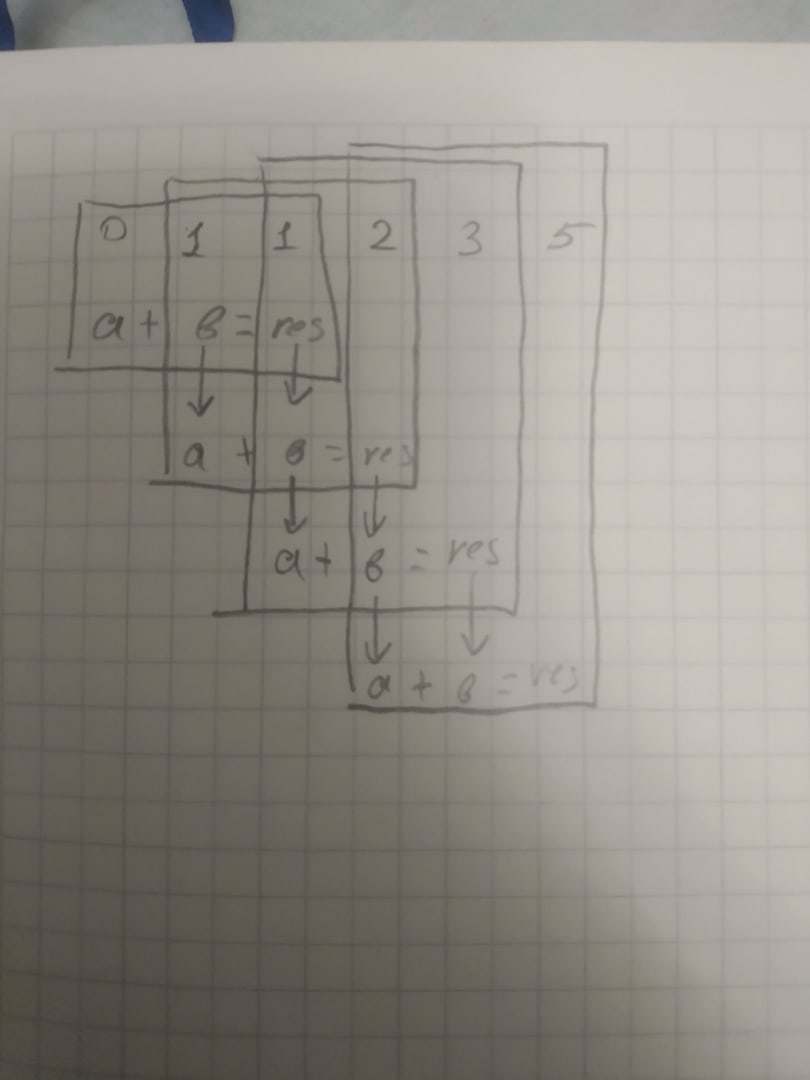 0 1 1 2 3 5
a + в = res
a + в = res
a + в = res
a + в = res